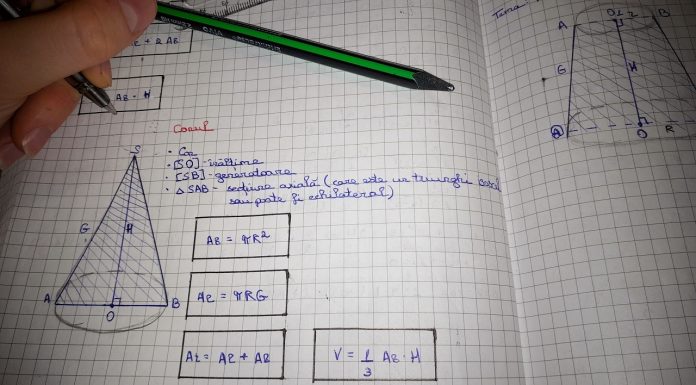 + 2 AB
AB · H
Conul
[SO] - înălțime
[SB] - generatoare
△SAB - secțiune axială (care este un triunghi
sau poate fi echilateral)
S
G
H
A
B
O
AB = πR²
Aℓ = πRG
At = Aℓ + AB
V = 1/3 AB · H
Tema
A
B
G
H
O
R